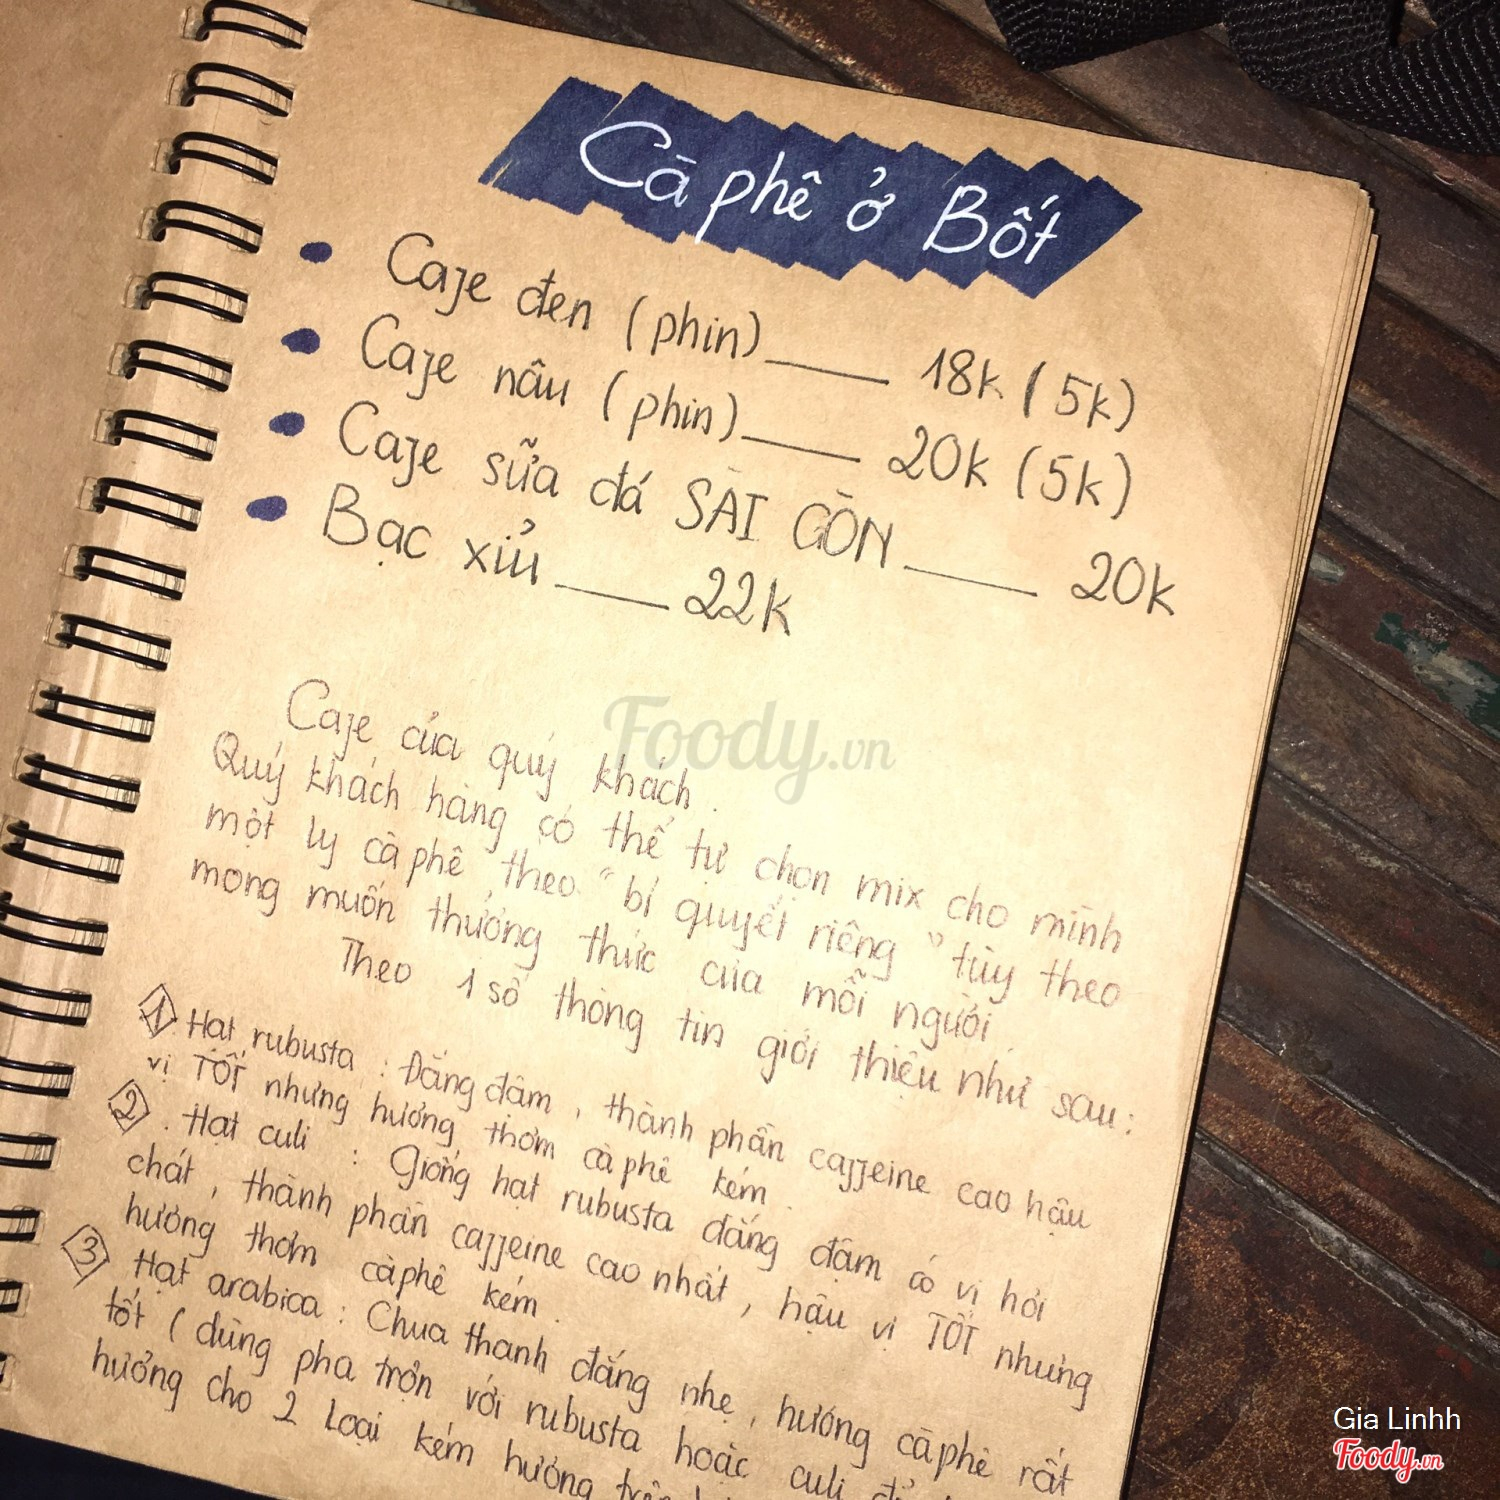 Cà phê ở Bốt
Cafe đen (phin) ___ 18k (5k)
Cafe nâu (phin) ___ 20k (5k)
Cafe sữa đá SÀI GÒN ___ 20k
Bạc xỉu ___ 22k
Cafe của quý khách.
Quý khách hàng có thể tự chọn mix cho mình
một ly cà phê theo "bí quyết riêng" tùy theo
mong muốn thưởng thức của mỗi người.
Theo 1 số thông tin giới thiệu như sau:
1. Hạt rubusta : Đắng đậm, thành phần caffeine cao hậu
vị TỐT nhưng hương thơm cà phê kém.
2. Hạt culi : Giống hạt rubusta đắng đậm có vị hơi
chát, thành phần caffeine cao nhất, hậu vị TỐT nhưng
hương thơm cà phê kém.
3 Hạt arabica : Chua thanh đắng nhẹ, hương cà phê rất
tốt (dùng pha trộn với rubusta hoặc culi
hương cho 2 loại kém hương
Foody.vn
Gia Linhh
Foody.vn